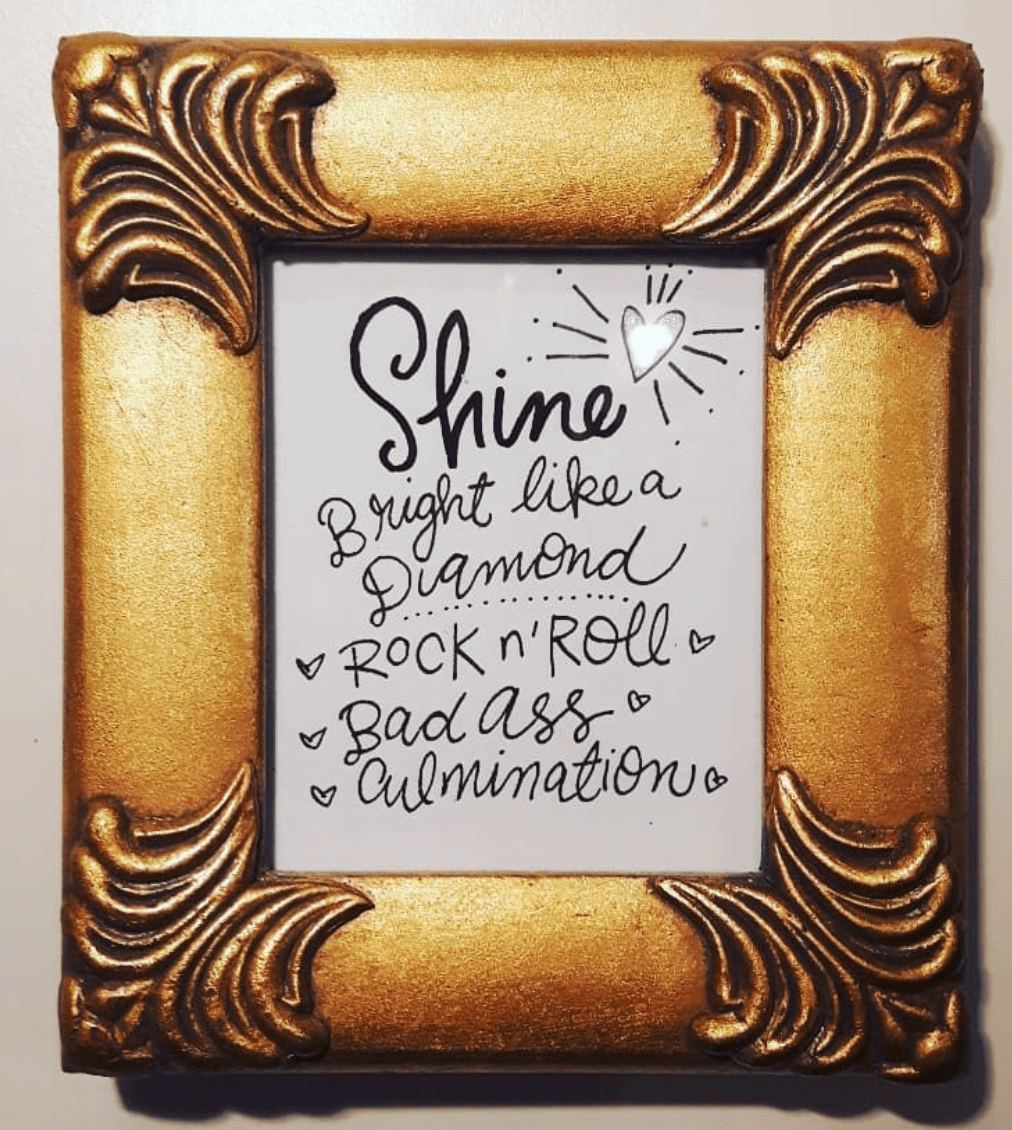 Shine
Bright like a
Diamond
Rock n' Roll
Bad Ass
Culmination